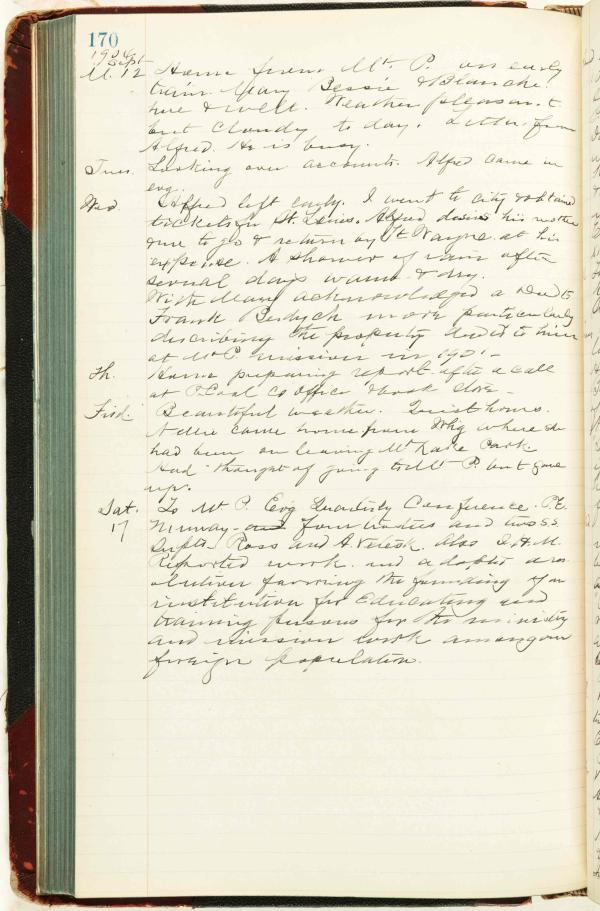 170
1904
Sept
M. 12 Home from Mt. P. on early
train. Mary Bessie & Blanche
here & well. Weather pleasant
but cloudy to day. Letter from
Alfred. He is busy.
Tues. Looking over accounts. Alfred came in
evg.
Wed. Alfred left early. I went to city & obtained
tickets for St. Louis. Alfred desires his mother
& me to go & return by Ft Wayne at his
expense. A shower of rain after
several days warm & dry.
With Mary acknowledged a Deed to
Frank more particularly
describing the property deeded to him
at Mt P. mission in 1901 -
Th. Home preparing report after a call
at P. Coal Co office & book store -
Frid. Beautiful weather. Quiet hours.
Nellie came home from where she
had been on leaving Mt Lake Park.
Had thought of going to Mt P. but gave
up.
Sat. To Mt P. Evg Quarterly Conference. P.E.
17 and four and two S.S.
Supts Ross and A. also
Reported work. and adopted a res-
olution favoring the founding of an
institution for Educating and
training persons for the ministry
and mission work among our
foreign population.